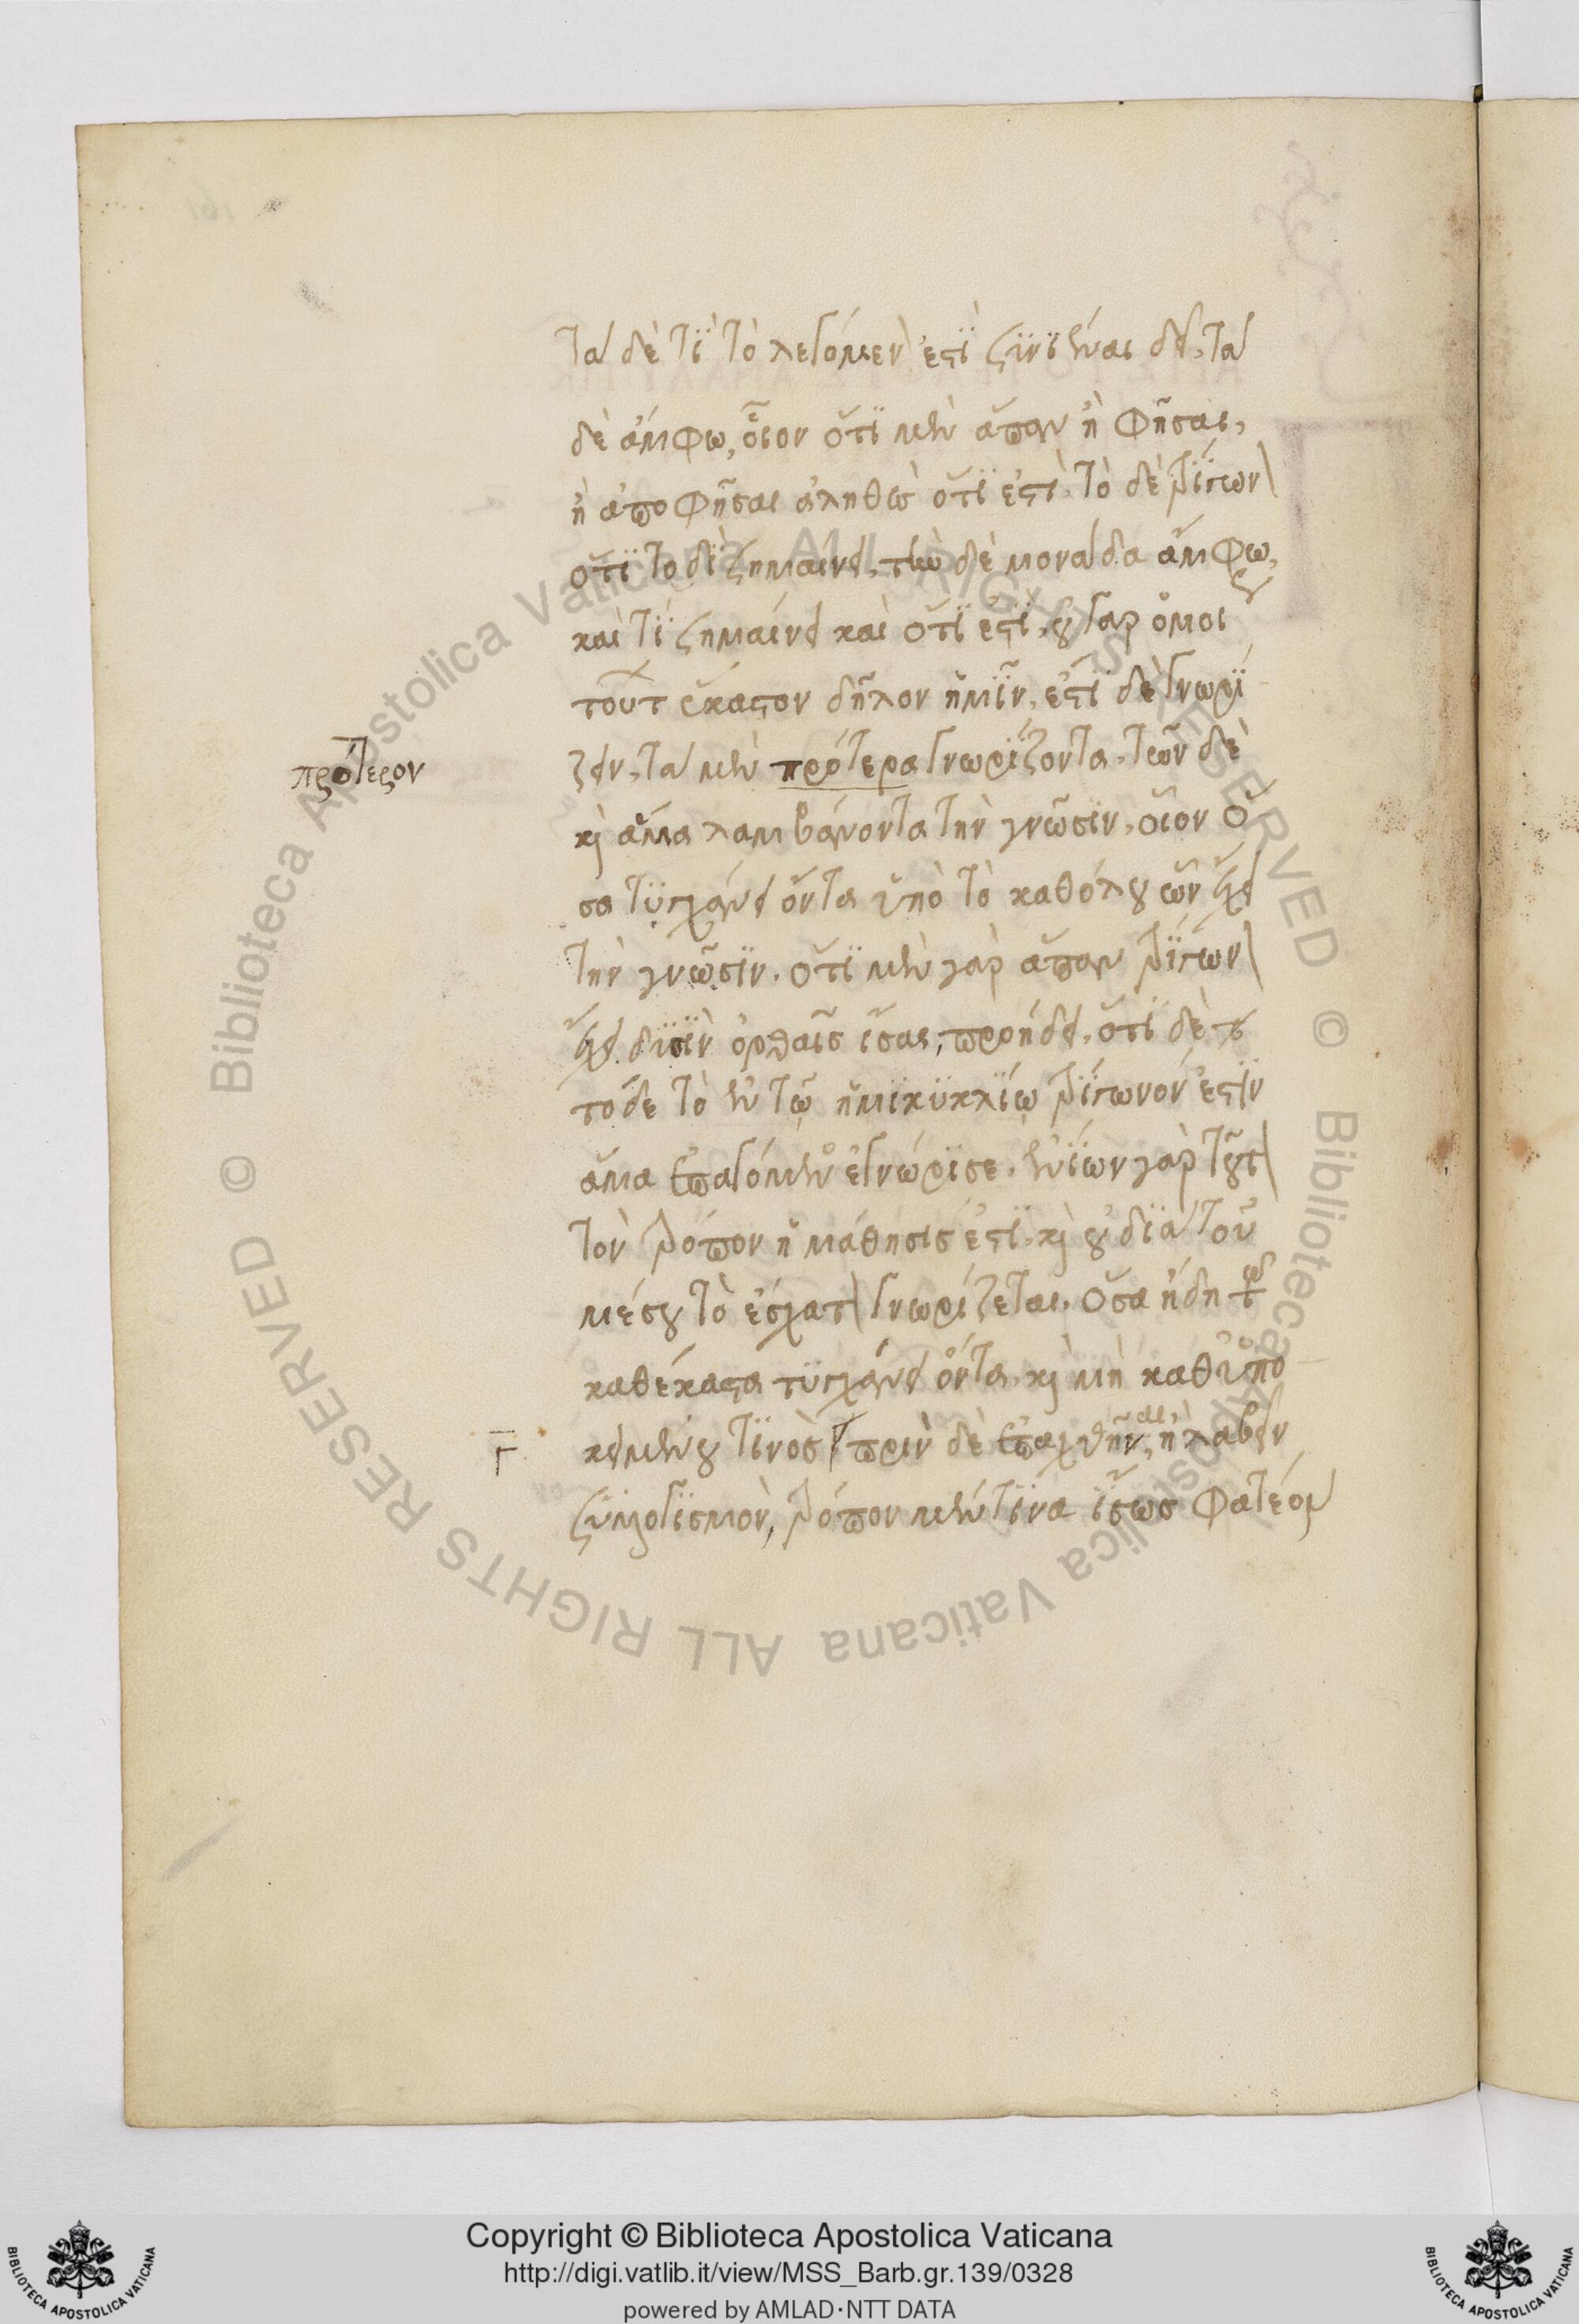 τὰ δὲ τί τὸ λεγόμενόν ἐστι ξυνιέναι δεῖ, τὰ
δὲ ἄμφω, οἷον ὅτι μὲν ἅπαν ἢ φῆσαι,
ἢ ἀποφῆσαι ἀληθὲς ὅτι ἔστι, τὸ δὲ τρίγωνον
ὅτι τοδὶ σημαίνει, τὴν δὲ μονάδα ἄμφω,
καὶ τί σημαίνει καὶ ὅτι ἔστι, οὐ γὰρ ὁμοίως
τούτων ἕκαστον δῆλον ἡμῖν, ἔστι δὲ γνωρί
ζειν, τὰ μὲν πρότερα γνωρίζοντα, τῶν δὲ
πρότερον
καὶ ἅμα λαμβάνοντα τὴν γνῶσιν, οἷον ὅ
σα τυγχάνει ὄντα ὑπὸ τὸ καθόλου ὧν ἔχει
τὴν γνῶσιν. ὅτι μὲν γὰρ ἅπαν τρίγωνον
ἔχει δυσὶν ὀρθαῖς ἴσας, προῄδει. ὅτι δὲ
τόδε τὸ ἐν τῷ ἡμικυκλίῳ τρίγωνόν ἐστιν
ἅμα ἐπαγόμενος ἐγνώρισε. ἐνίων γὰρ τοῦτον
τὸν τρόπον ἡ μάθησίς ἐστι, καὶ οὐ διὰ τοῦ
μέσου τὸ ἔσχατον γνωρίζεται. ὅσα ἤδη τῶν
καθέκαστα τυγχάνει ὄντα, καὶ μὴ καθ' ὑπο
κειμένου τινός πρὶν δὲ ἐπαχθῆναι, ἢ λαβεῖν
Γ
συλλογισμὸν, τρόπον μέν τινα ἴσως φατέον
Copyright © Biblioteca Apostolica Vaticana
http://digi.vatlib.it/view/MSS_Barb.gr.139/0328
powered by AMLAD·NTT DATA
BIBLIOTECA APOSTOLICA VATICANA
BIBLIOTECA APOSTOLICA VATICANA
© Biblioteca Apostolica Vaticana ALL RIGHTS RESERVED © Biblioteca Apostolica Vaticana ALL RIGHTS RESERVED